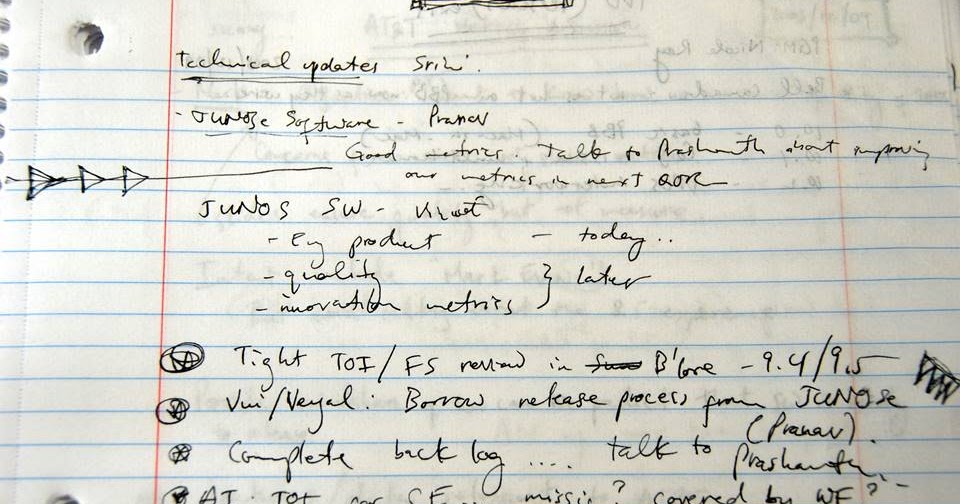 Technical updates Srihi.
- JUNOSe Software - Pranav
Good metrics. Talk to Prashanth about improving
our metrics in next QOR
JUNOS SW -
- Eng product - today..
- quality } later
- innovation metrics
Tight TOI/FS review in B'lore - 9.4/9.5
Borrow release process from JUNOSe
(Pranav).
Complete back log .... talk to Prashanth
AI: TOI missing? covered by WF?